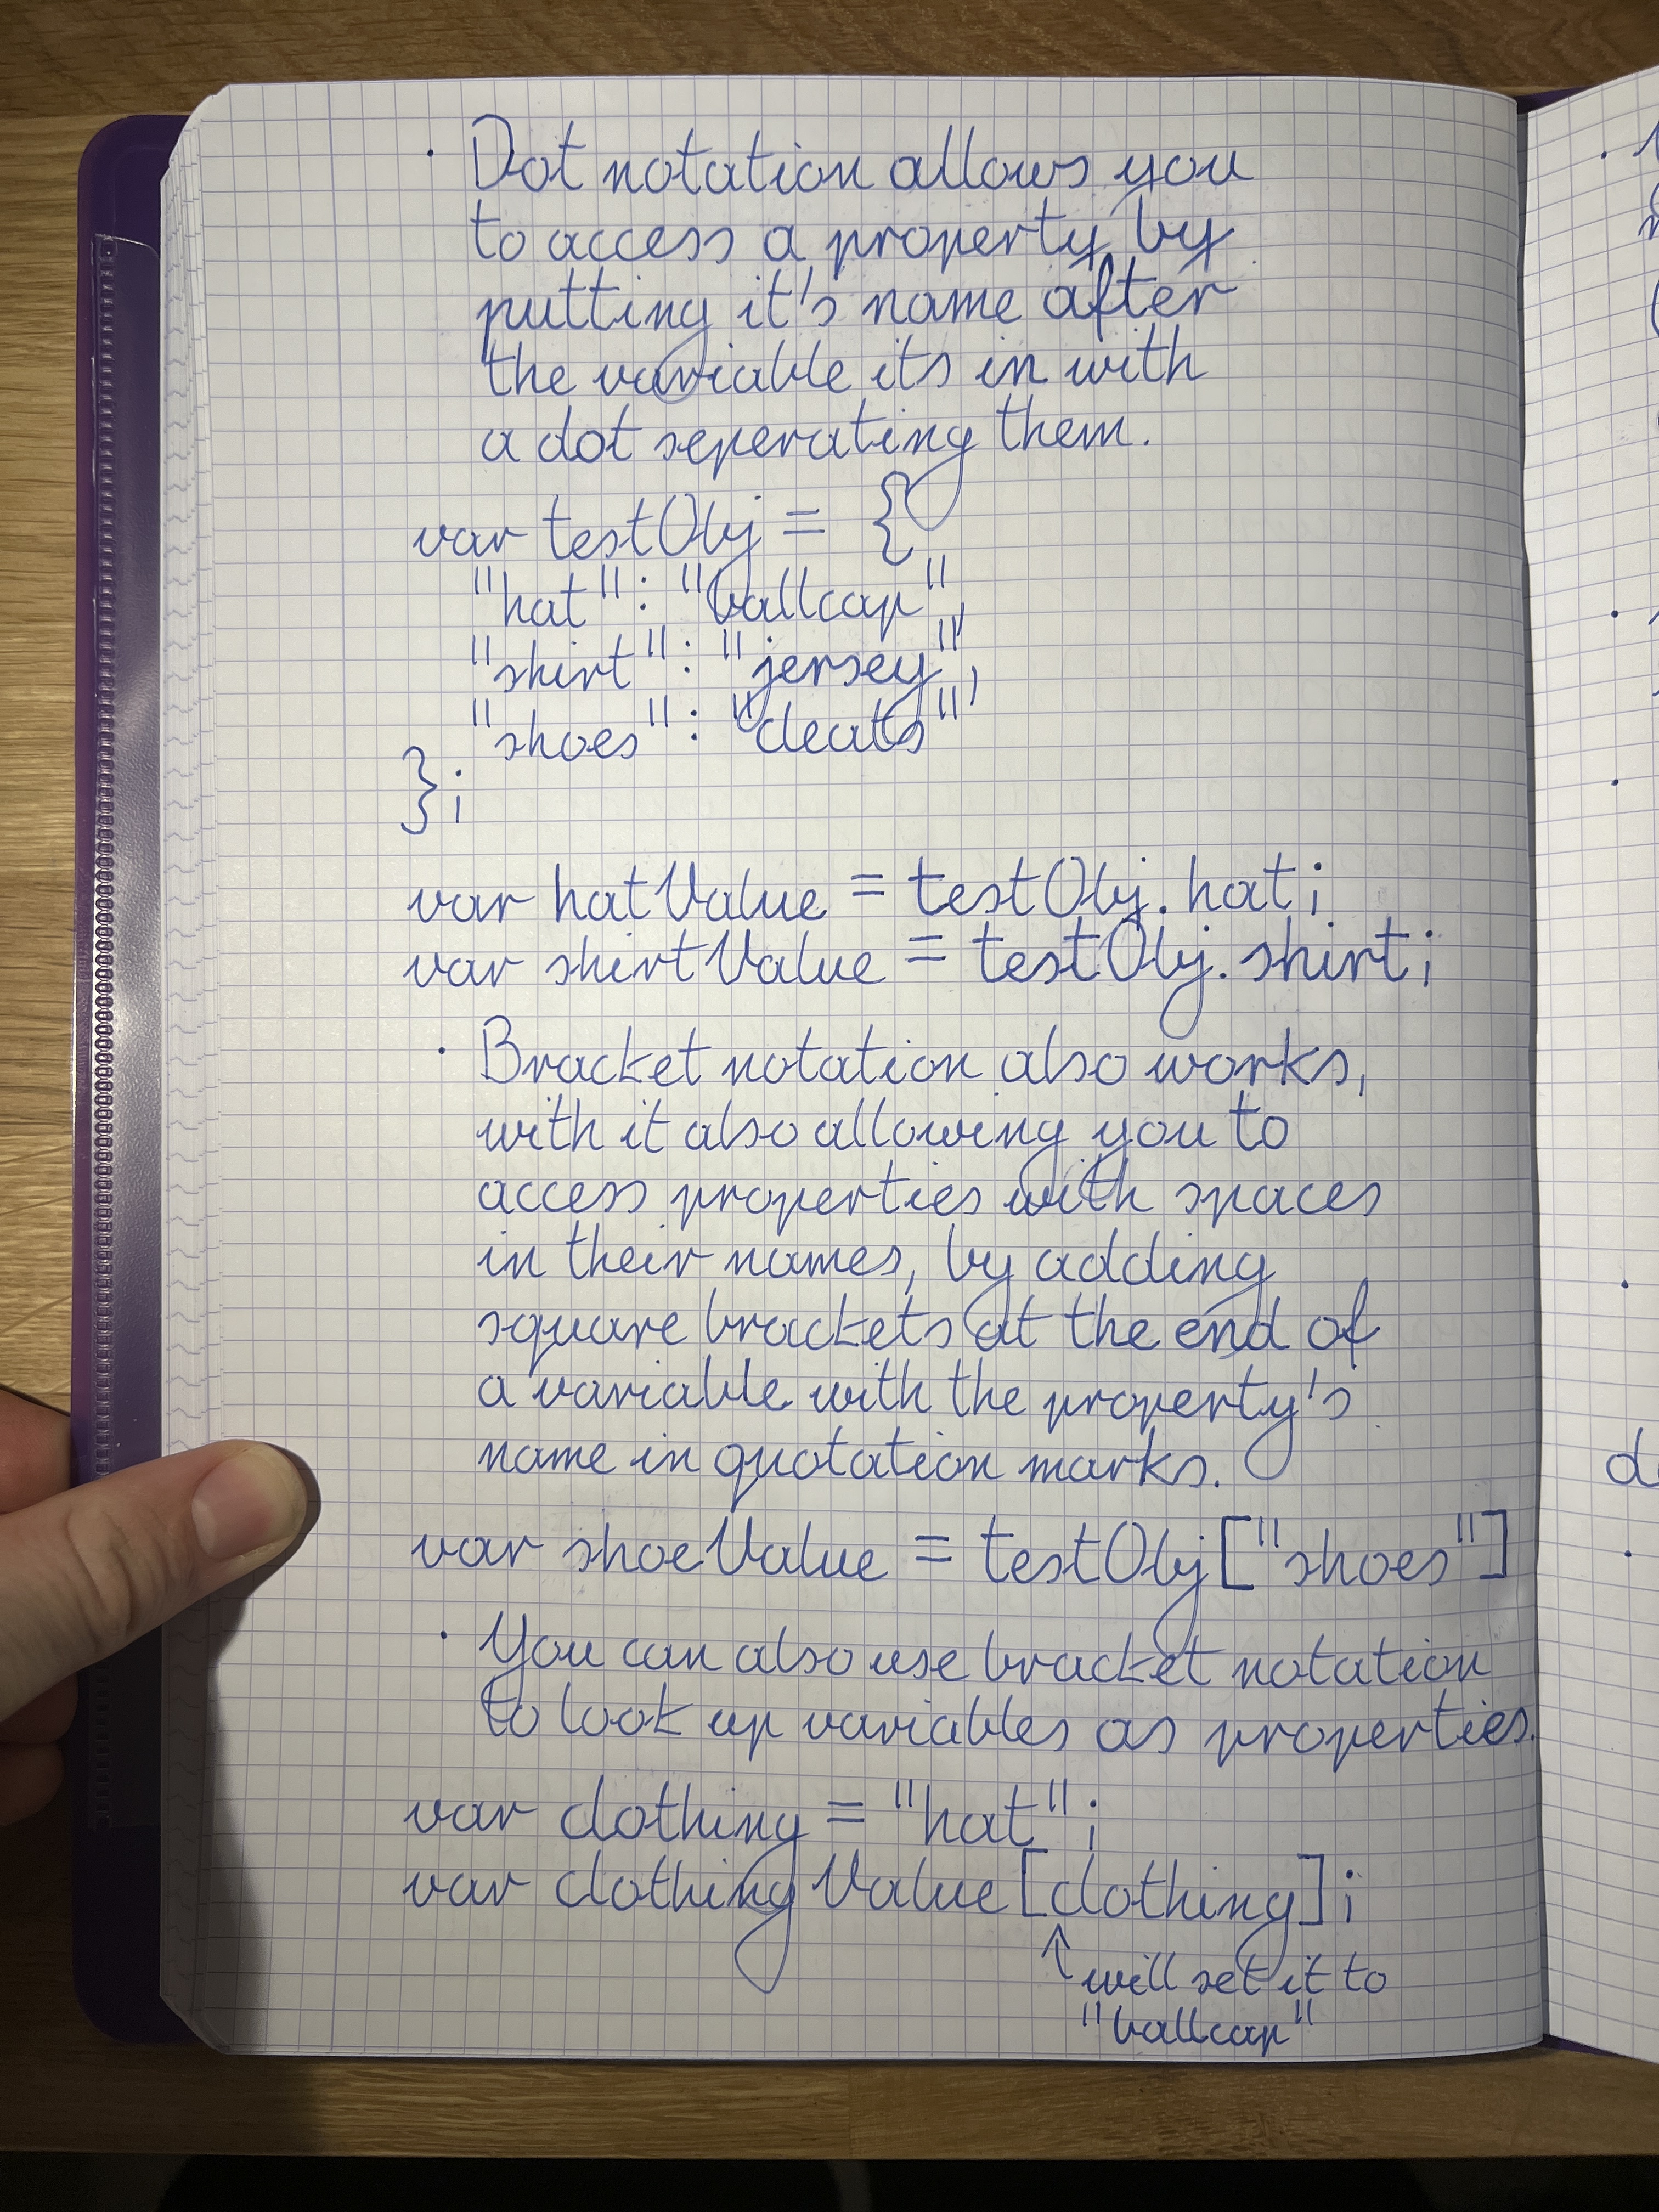 · Dot notation allows you
to access a property by
putting it's name after
the variable its in with
a dot seperating them.
var testObj = {
"hat": "ballcap",
"shirt": "jersey",
"shoes": "cleats"
};
var hatValue = testObj.hat;
var shirtValue = testObj.shirt;
· Bracket notation also works,
with it also allowing you to
access properties with spaces
in their names, by adding
square brackets at the end of
a variable with the property's
name in quotation marks.
var shoeValue = testObj["shoes"]
· You can also use bracket notation
to look up variables as properties.
var clothing = "hat";
var clothingValue[clothing];
↑ will set it to
"ballcap"